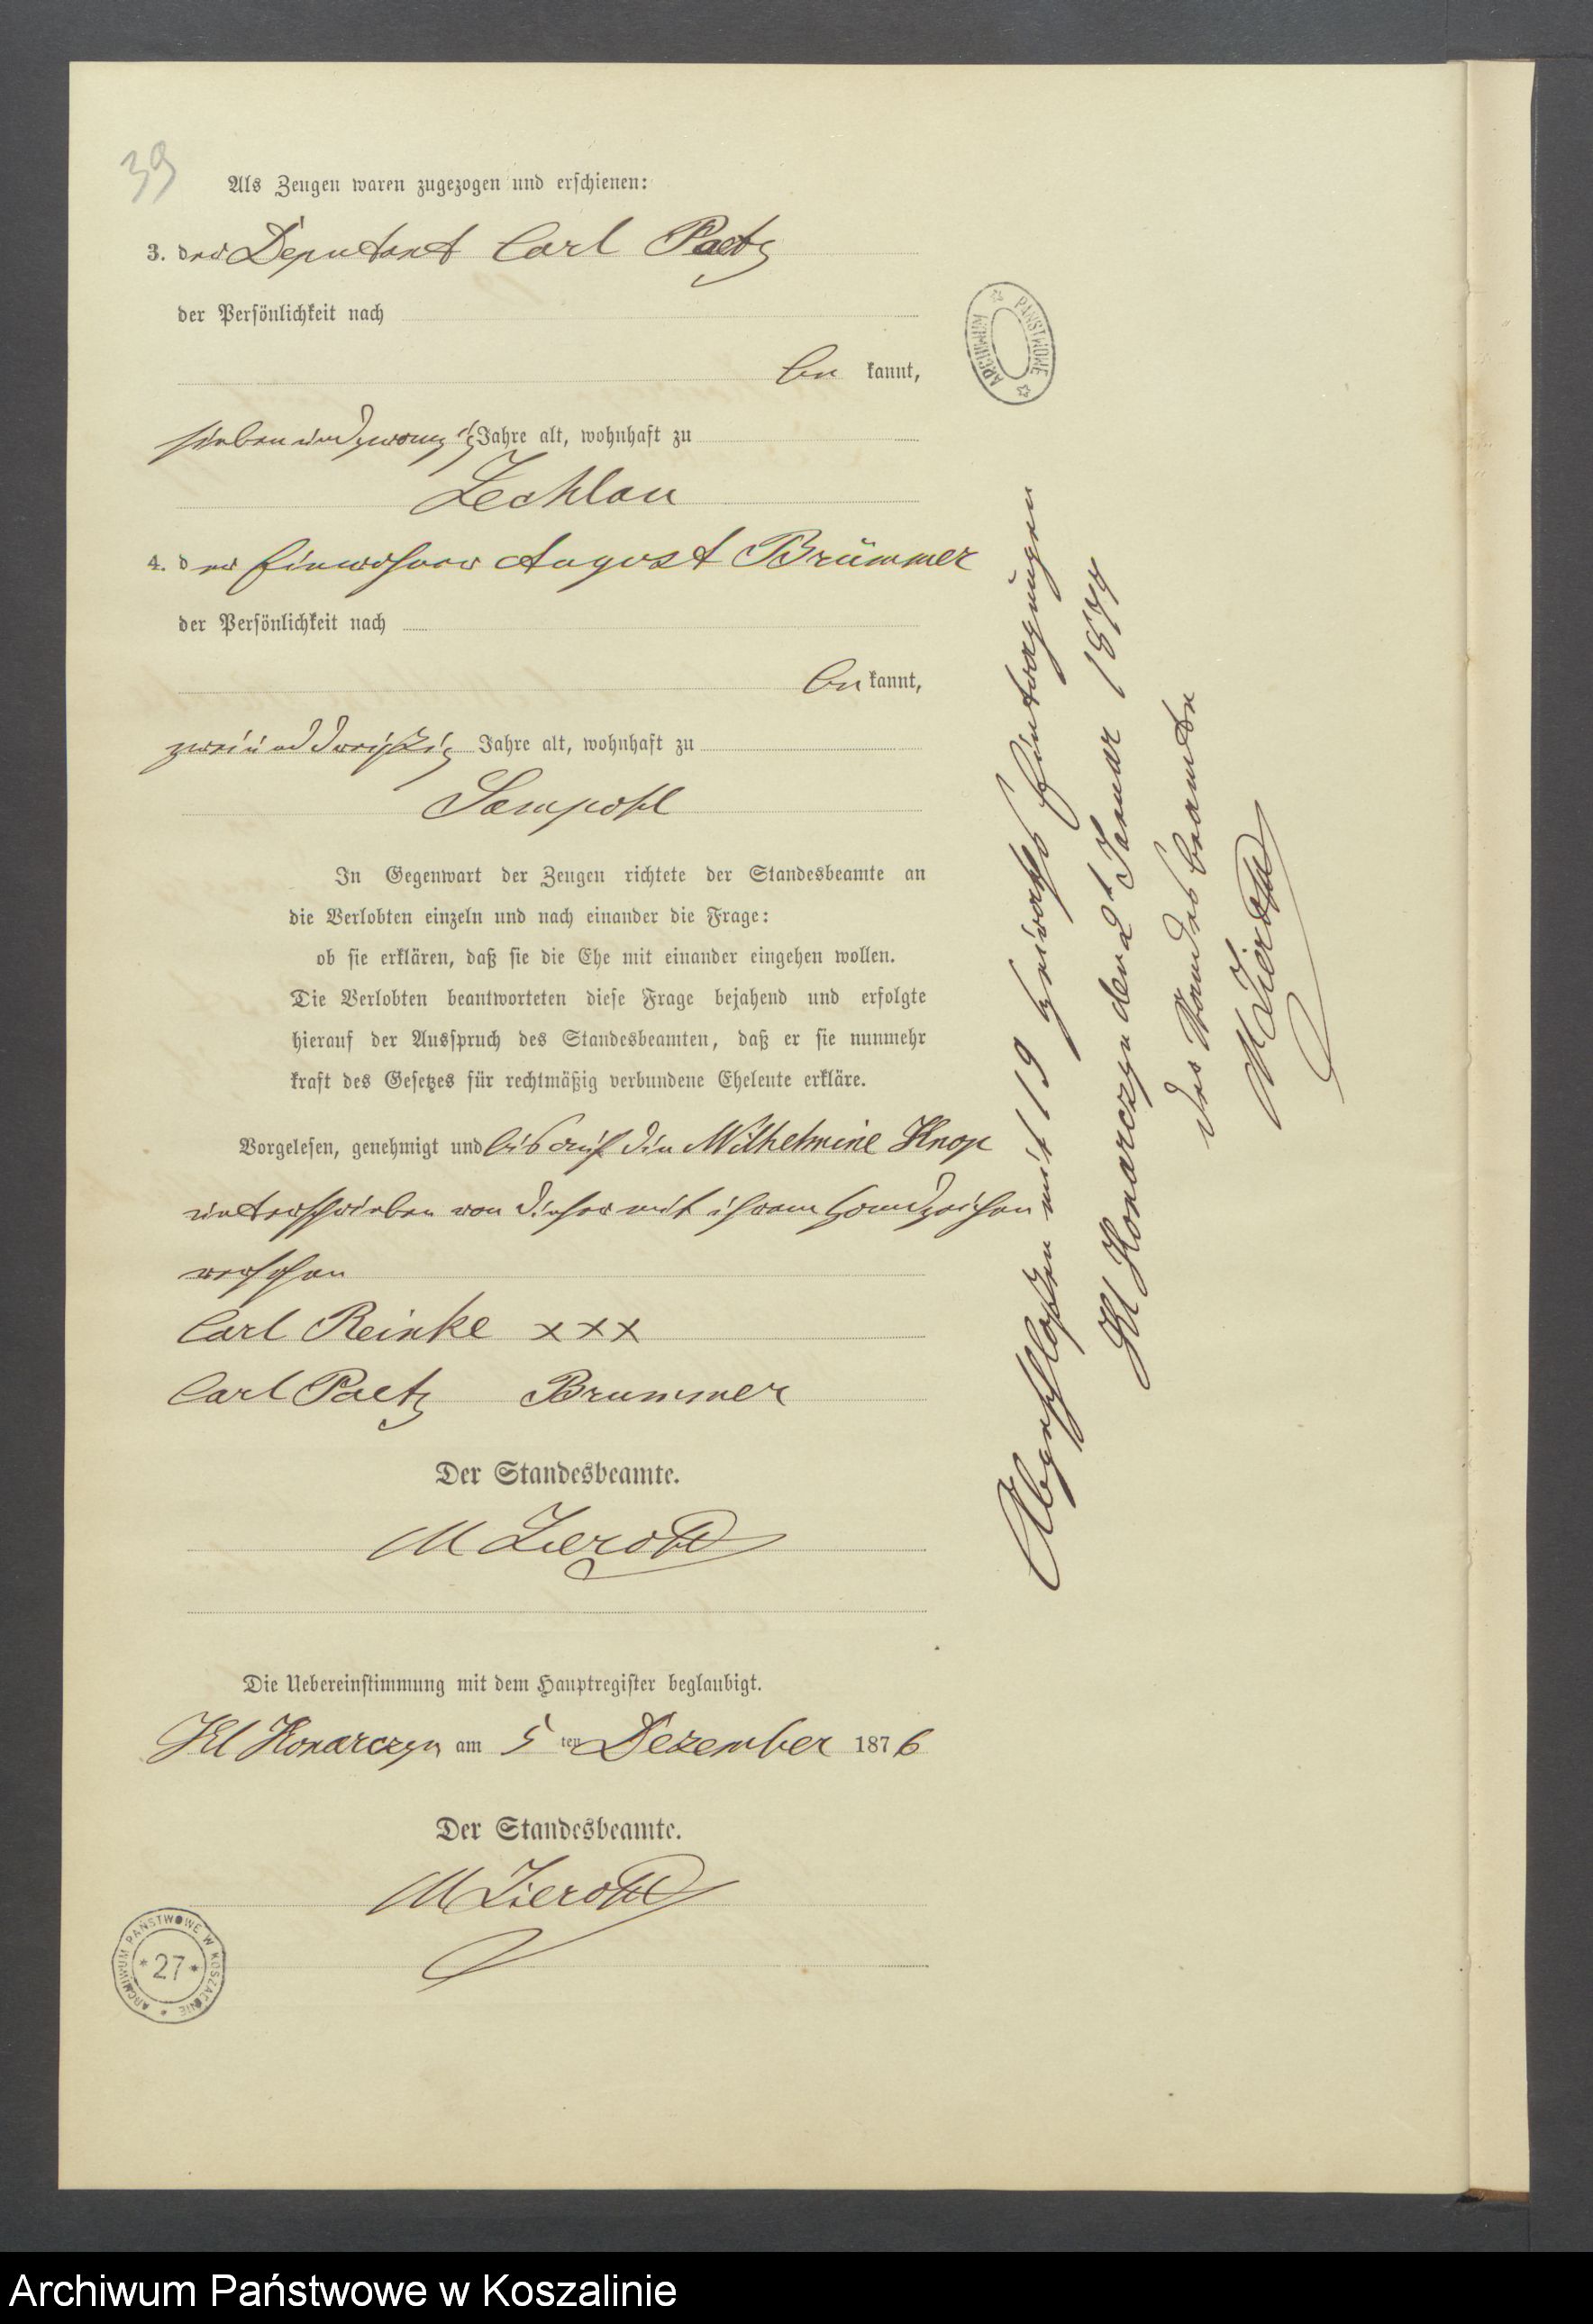 39
Als Zeugen waren zugezogen und erschienen:
3. der Deputant Carl Paetz
der Persönlichkeit nach
be kannt,
siebenundzwanzig Jahre alt, wohnhaft zu
Zechlau
4. der Einwohner August Brümmer
der Persönlichkeit nach
be kannt,
zweiunddreißig Jahre alt, wohnhaft zu
Sampohl
In Gegenwart der Zeugen richtete der Standesbeamte an
die Verlobten einzeln und nach einander die Frage:
ob sie erklären, daß sie die Ehe mit einander eingehen wollen.
Die Verlobten beantworteten diese Frage bejahend und erfolgte
hierauf der Ausspruch des Standesbeamten, daß er sie nunmehr
kraft des Gesetzes für rechtmäßig verbundene Eheleute erkläre.
Vorgelesen, genehmigt und bis auf die Wilhelmine Knop
unterschrieben von dieser mit ihrem Handzeichen
versehen
Carl Reinke xxx
Carl Paetz Brummer
Der Standesbeamte.
M Zierott
Die Uebereinstimmung mit dem Hauptregister beglaubigt.
Kl Konarczyn am 5 ten Dezember 1876
Der Standesbeamte.
M Zierott
Abgeschloßen mit 19 Heiraths Eintragungen
Kl Konarczyn den 2t Januar 1877
der Standesbeamte
M Zierott
ARCHIWUM PAŃSTWOWE
ARCHIWUM PAŃSTWOWE W KOSZALINIE
*27*
Archiwum Państwowe w Koszalinie